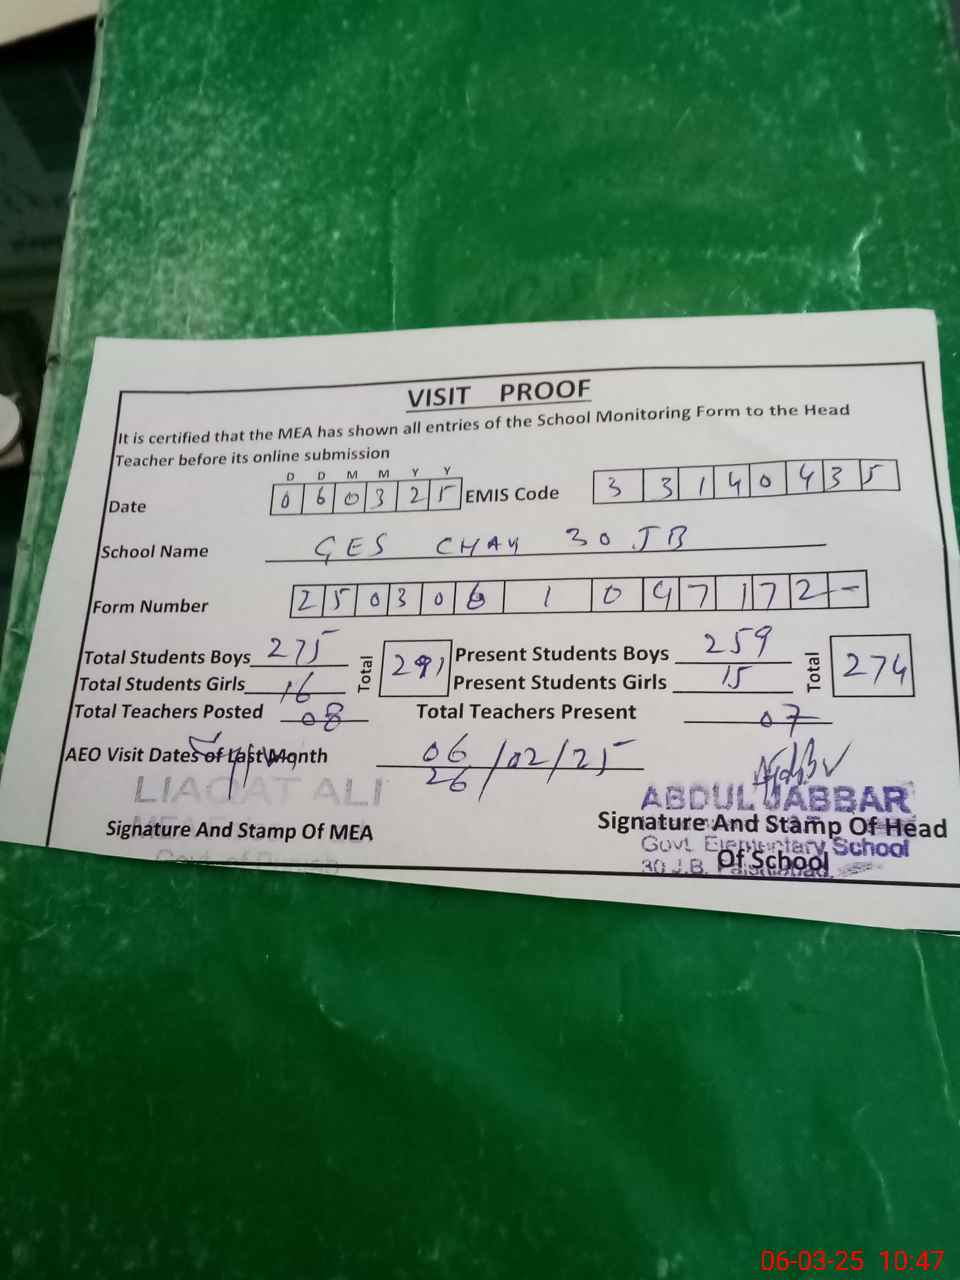 VISIT PROOF
It is certified that the MEA has shown all entries of the School Monitoring Form to the Head
Teacher before its online submission
D D M M Y Y
Date 0 6 0 3 2 5 EMIS Code 3 3 1 4 0 4 3 5
School Name GES CHAK 30 JB
Form Number 2 5 0 3 0 6 1 0 4 7 1 7 2 -
Total Students Boys 275 Total 291 Present Students Boys 259 Total 274
Total Students Girls 16 Present Students Girls 15
Total Teachers Posted 08 Total Teachers Present 07
AEO Visit Dates of Last Month 06/26/02/25
LIAQAT ALI ABDUL JABBAR
Signature And Stamp Of MEA Signature And Stamp Of Head
Govt. Elementary School
Of School
30 J.B. Faisalabad
06-03-25 10:47